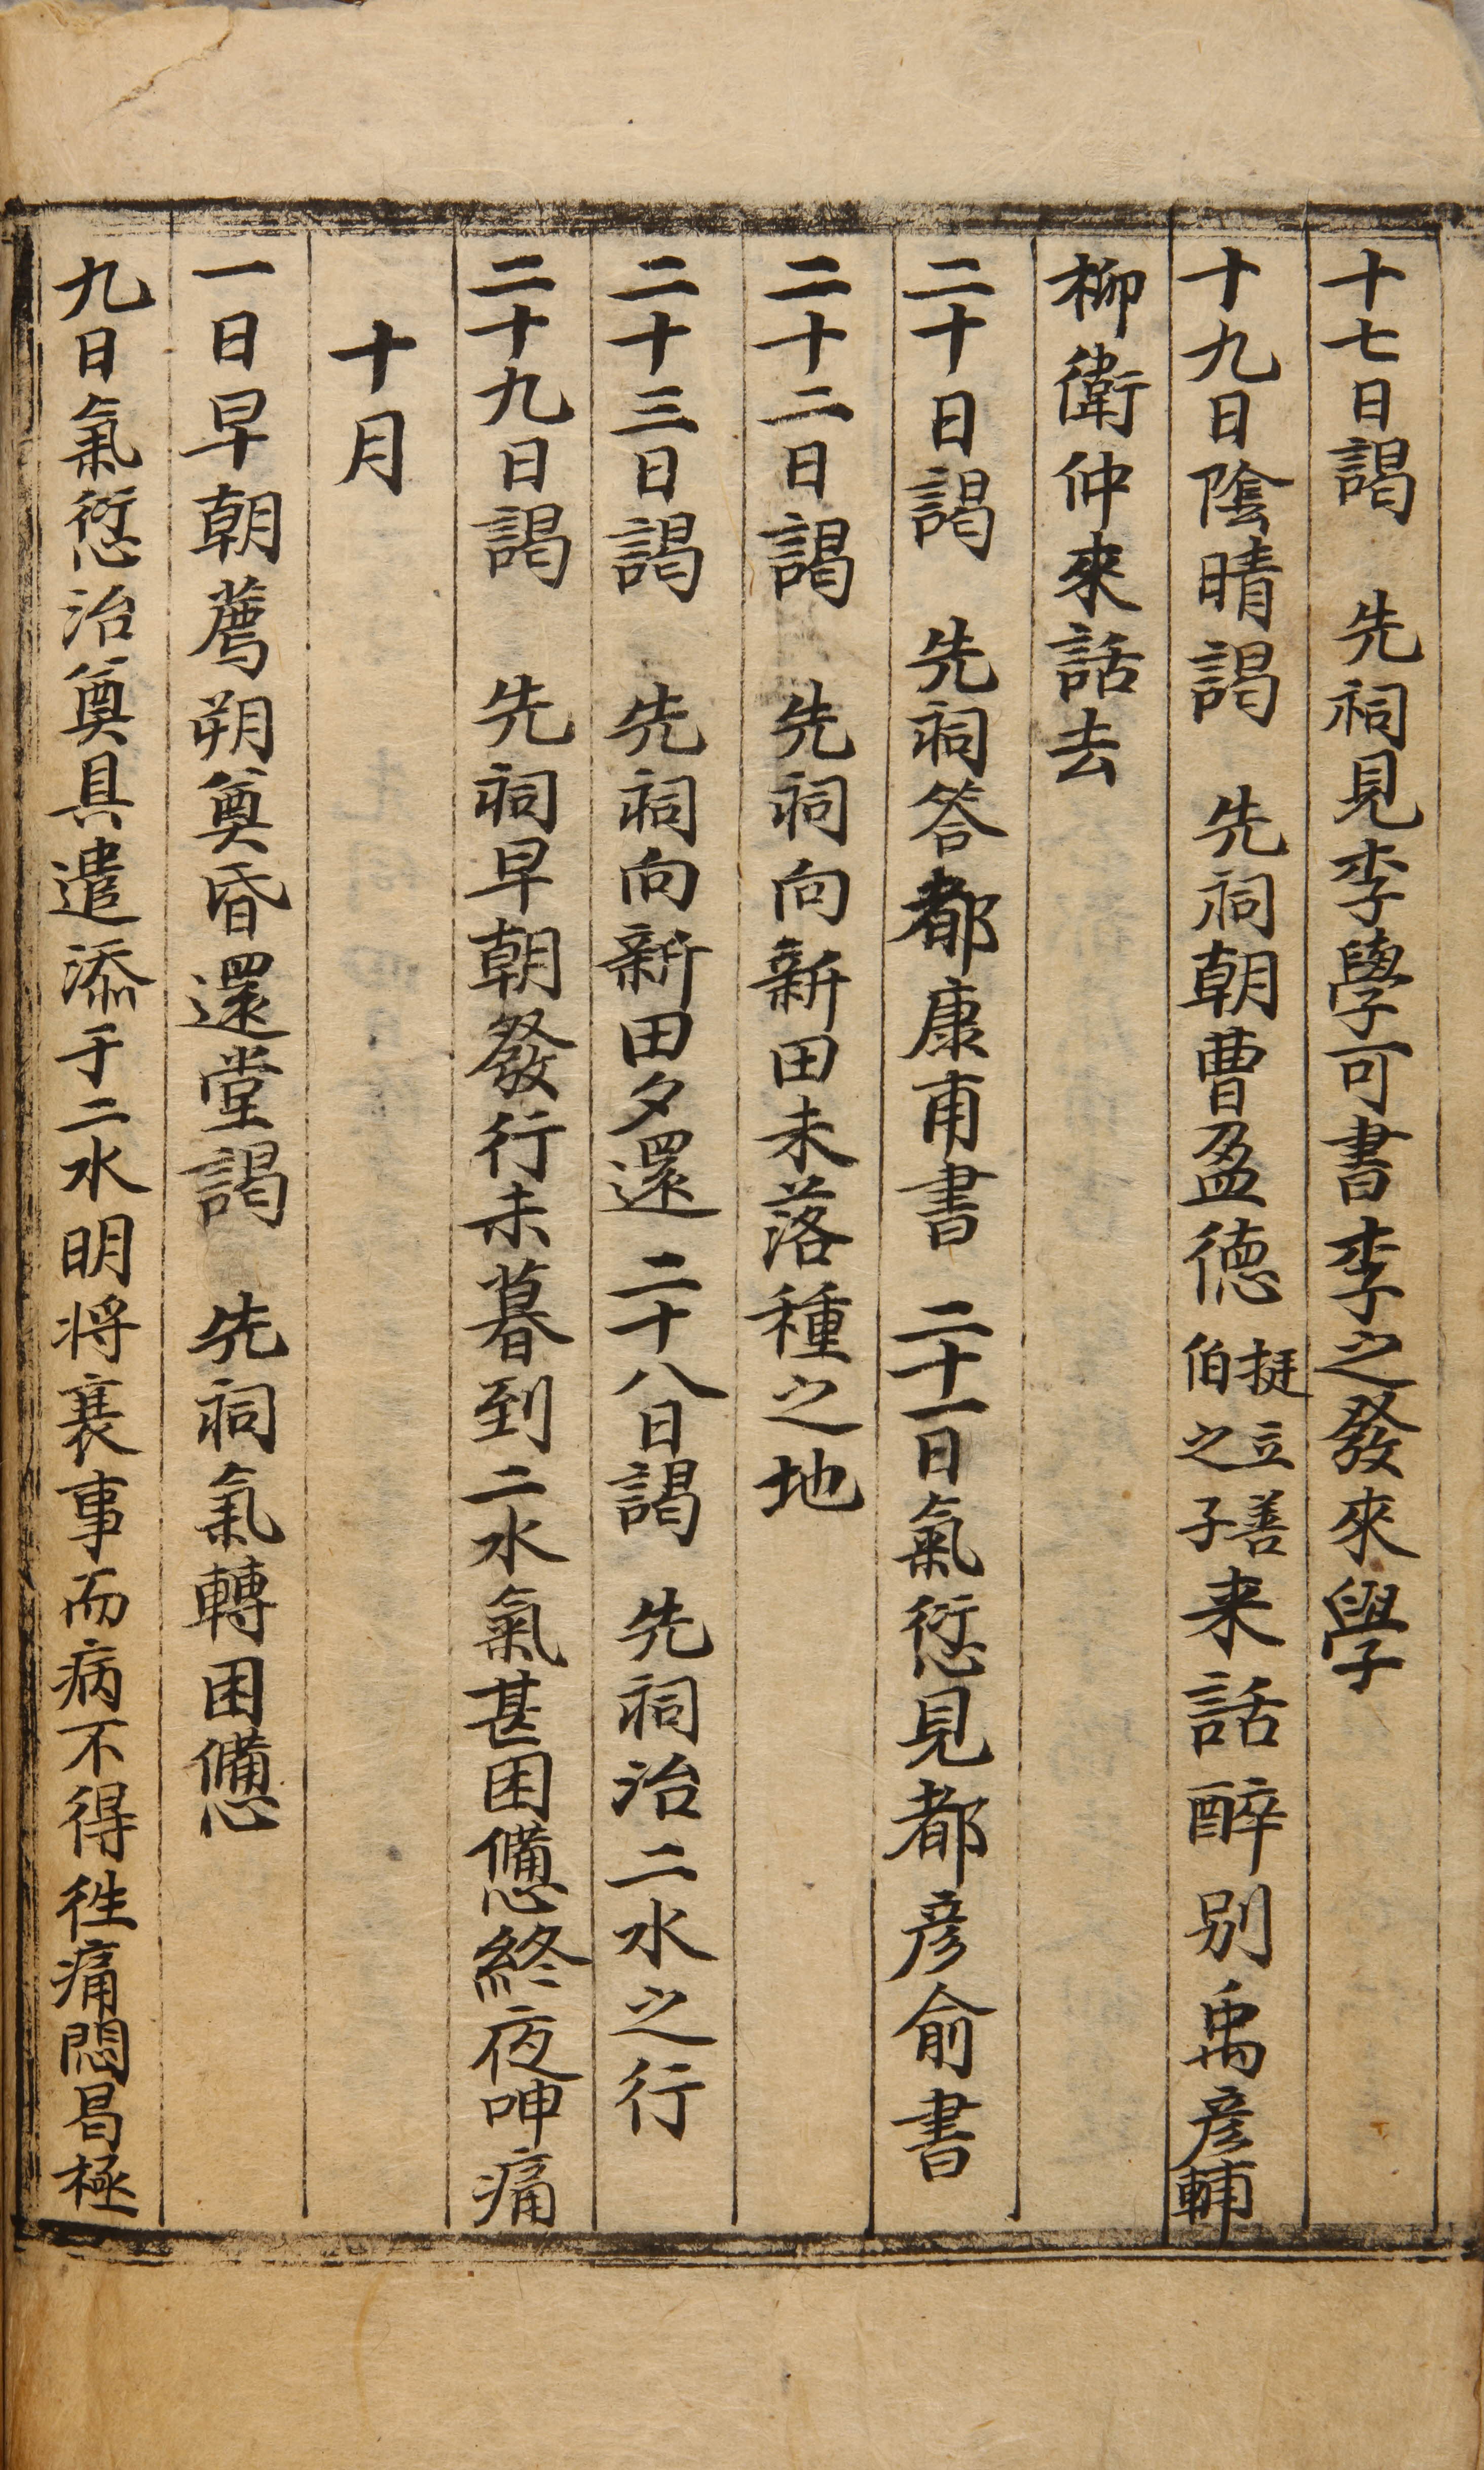 十七日謁　先祠見李學可書李之發來學
十九日陰晴謁　先祠朝曹盈德挺立善伯之子来話醉別禹彦輔
柳衛仲來話去
二十日謁　先祠答都康甫書　二十一日氣愆見都彦俞書
二十二日謁　先祠向新田未落種之地
二十三日謁　先祠向新田夕還　二十八日謁　先祠治二水之行
二十九日謁　先祠早朝發行未暮到二水氣甚困憊終夜呻痛
十月
一日早朝薦朔奠昏還堂謁　先祠氣轉困憊
九日氣愆治奠具遣添于二水明将襄事而病不得徃痛悶曷極